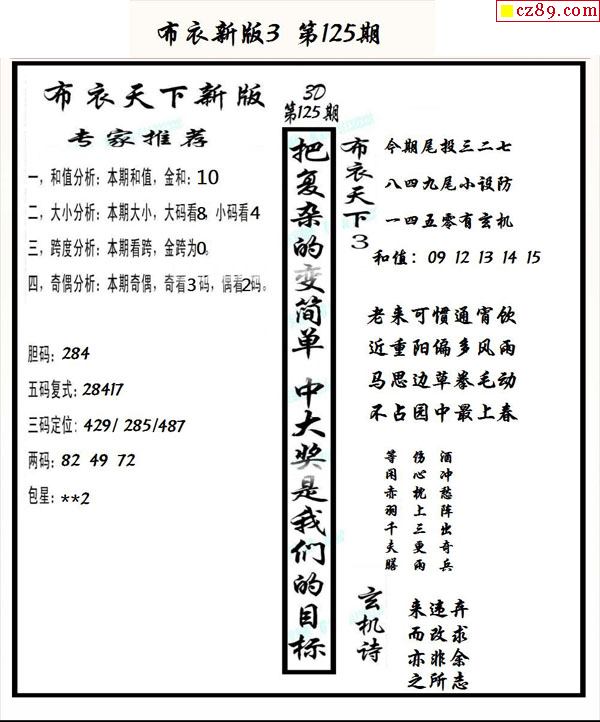 cz89.com
布衣新版3 第125期
布衣天下新版
专家推荐
一，和值分析：本期和值，金和：10
二，大小分析：本期大小，大码看8，小码看4
三，跨度分析：本期看跨，金跨为0。
四，奇偶分析：本期奇偶，奇看3码，偶看2码。
胆码：284
五码复式：28417
三码定位：429/ 285/487
两码：82 49 72
包星：**2
3D
第125期
把复杂的变简单 中大奖是我们的目标
布衣天下3
今期尾投三二七
八四九尾小设防
一四五零有玄机
和值：09 12 13 14 15
老来可惯通宵饮
近重阳偏多风雨
马思边草拳毛动
不占园中最上春
酒冲愁阵出奇兵
伤心枕上三更雨
等闲赤羽千夫膳
玄机诗
弃求余志
违改非所
来而亦之